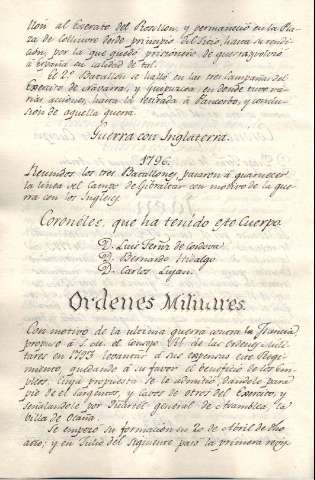 llon al Exercito del Rosellon, y permaneció en la Pla-
za de Colliuvre desde principio del Sitio, hasta su rendi-
cion, por la que quedó prisionero de guerra, y volvió
á España en calidad de tal.
El 2º Batallon se halló en las tres Campañas del
Exercito de Navarra, y Guipuzcoa, en donde tuvo va-
rias acciones, hasta la retirada à Pancorbo, y conclu-
sion de aquella guerra.
Guerra con Inglaterra.
1796.
Reunidos los tres Batallones, pasaron á guarnecer
la linea del Campo de Gibraltar con motivo de la gue-
rra con los Ingleses.
Coroneles, que ha tenido este Cuerpo.
D. Luis Ferñz de Cordova
D. Bernardo Hidalgo
D. Carlos Lujan.
Ordenes Militares.
Con motivo de la ultima guerra contra la Francia
propuso á S. M. el Consejo Rl. de las ordenes mili-
tares en 1793 levantar à sus expensas este Regi-
miento, quedando á su favor el beneficio de los Em-
pleos. Cuya propuesta se le admitió, dandole para
pie de el sargentos, y cavos de otros del Exercito, y
señalandole por Quartel general de Asamblea, la
Villa de Ocaña
Se empezó su formacion en 20 de Abril de dho
año, y en Julio del siguiente pasó la primera revis-